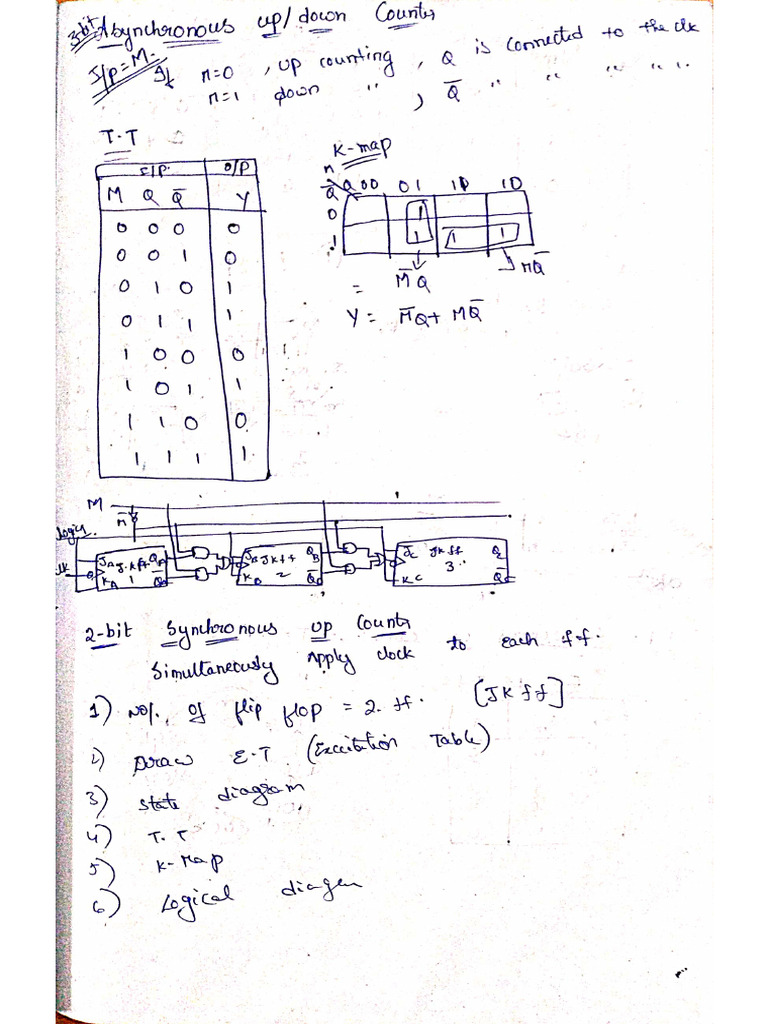 3-bit Asynchronous up/down Counter
I/p = M. If M=0, up counting, Q is connected to the clk
M=1 down " , Q̅ " " " " ".
T.T
I/P. O/P
M Q Q̅ Y
0 0 0 0
0 0 1 0
0 1 0 1
0 1 1 1
1 0 0 0
1 0 1 1
1 1 0 0
1 1 1 1
K-map
M
Q̅ Q 00 01 10 10
0 1
1 1 1 1
M̅Q MQ̅
=
Y = M̅Q + MQ̅
M
M̅
logic 1
clk
JA J-K ff QA
KA 1 Q̅
JB JK ff QB
KB 2 Q̅
JC JK ff Q
KC 3 Q̅
2-bit Synchronous up Counter
Simultaneously Apply clock to each ff.
1) No. of flip flop = 2 ff. [JK ff]
2) Draw E.T (Excitation Table)
3) State diagram
4) T.T
5) K-Map
6) Logical diagram